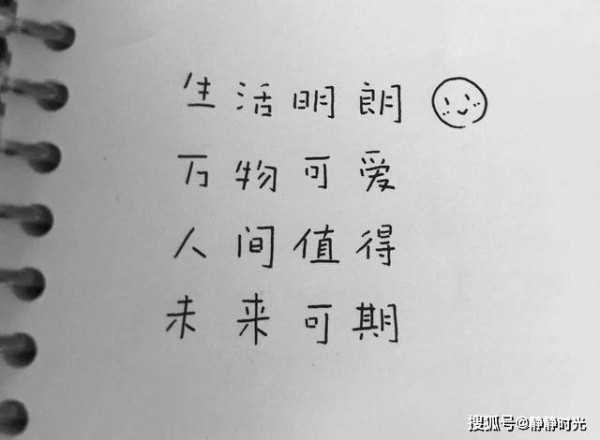 生活明朗
万物可爱
人间值得
未来可期
搜狐号@静静时光